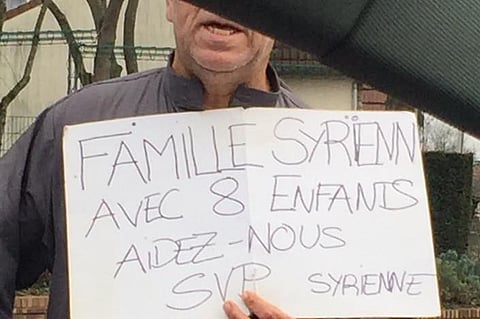 FAMILLE SYRÏENN
AVEC 8 ENFANTS
AIDEZ-NOUS
SVP SYRIENNE